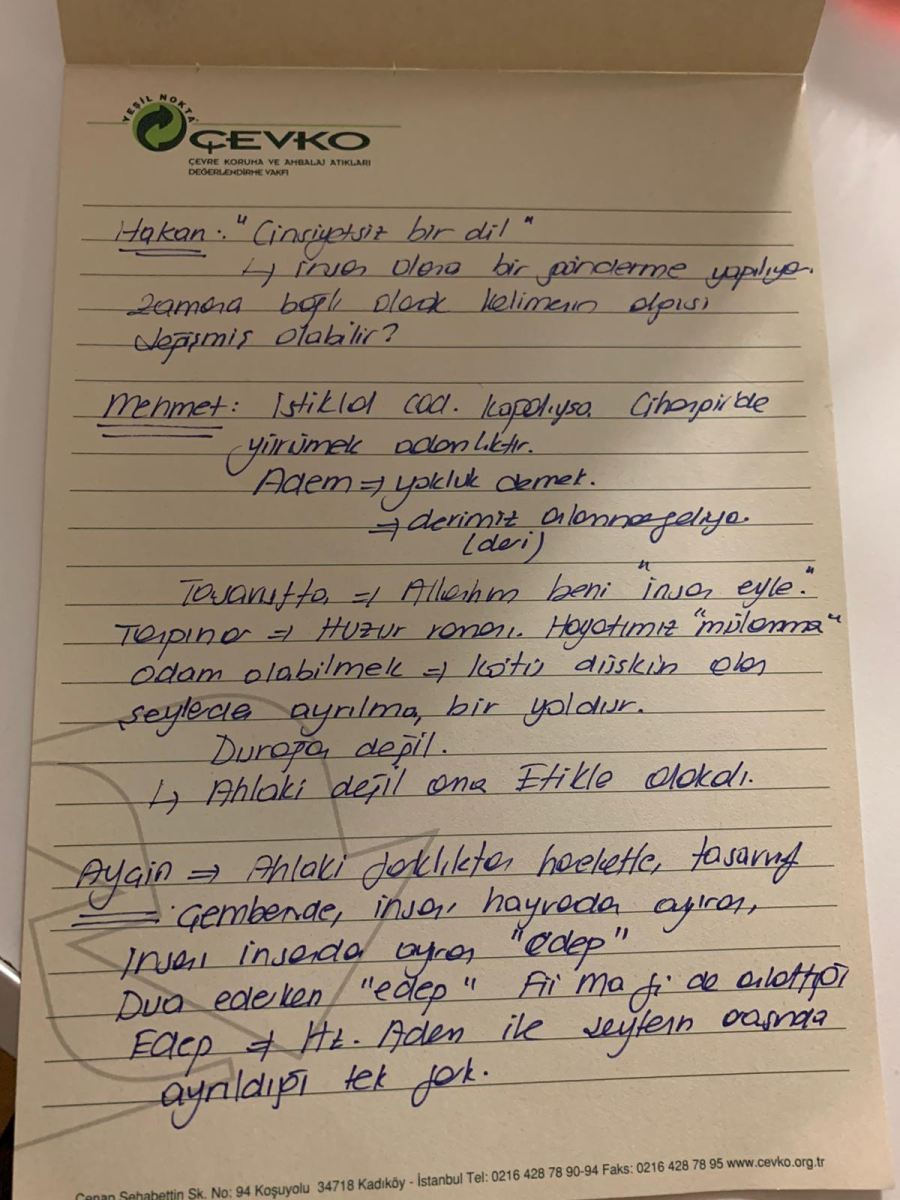 YEŞİL NOKTA
ÇEVKO
ÇEVRE KORUMA VE AMBALAJ ATIKLARI
DEĞERLENDİRME VAKFI
Hakan: "Cinsiyetsiz bir dil"
↳ insan olana bir gönderme yapılıyor.
zamana bağlı olarak kelimenin algısı
değişmiş olabilir?
Mehmet: İstiklal cad. kapalıysa Cihangir'de
yürümek adamlıktır.
Adem ⇒ yokluk demek.
⇒ derimiz anlamına geliyor.
(deri)
Tasavvufta ⇒ Allahım beni "insan eyle."
⇒ Huzur romanı. Hayatımız
adam olabilmek ⇒ kötü düşkün olan
şeylerde ayrılma, bir yoldur.
değil.
↳ Ahlaki değil ama Etikle alakalı.
⇒ Ahlaki farklılıktan hareketle, tasavvuf
Çemberinde, insanı hayvandan ayıran,
İnsanı insandan ayıran "edep"
Dua ederken "edep" Fii Ma fi de anlattığı
Edep ⇒ Hz. Adem ile şeytanın arasında
ayrıldığı tek fark.
Cenap Şehabettin Sk. No: 94 Koşuyolu 34718 Kadıköy - İstanbul Tel: 0216 428 78 90-94 Faks: 0216 428 78 95 www.cevko.org.tr